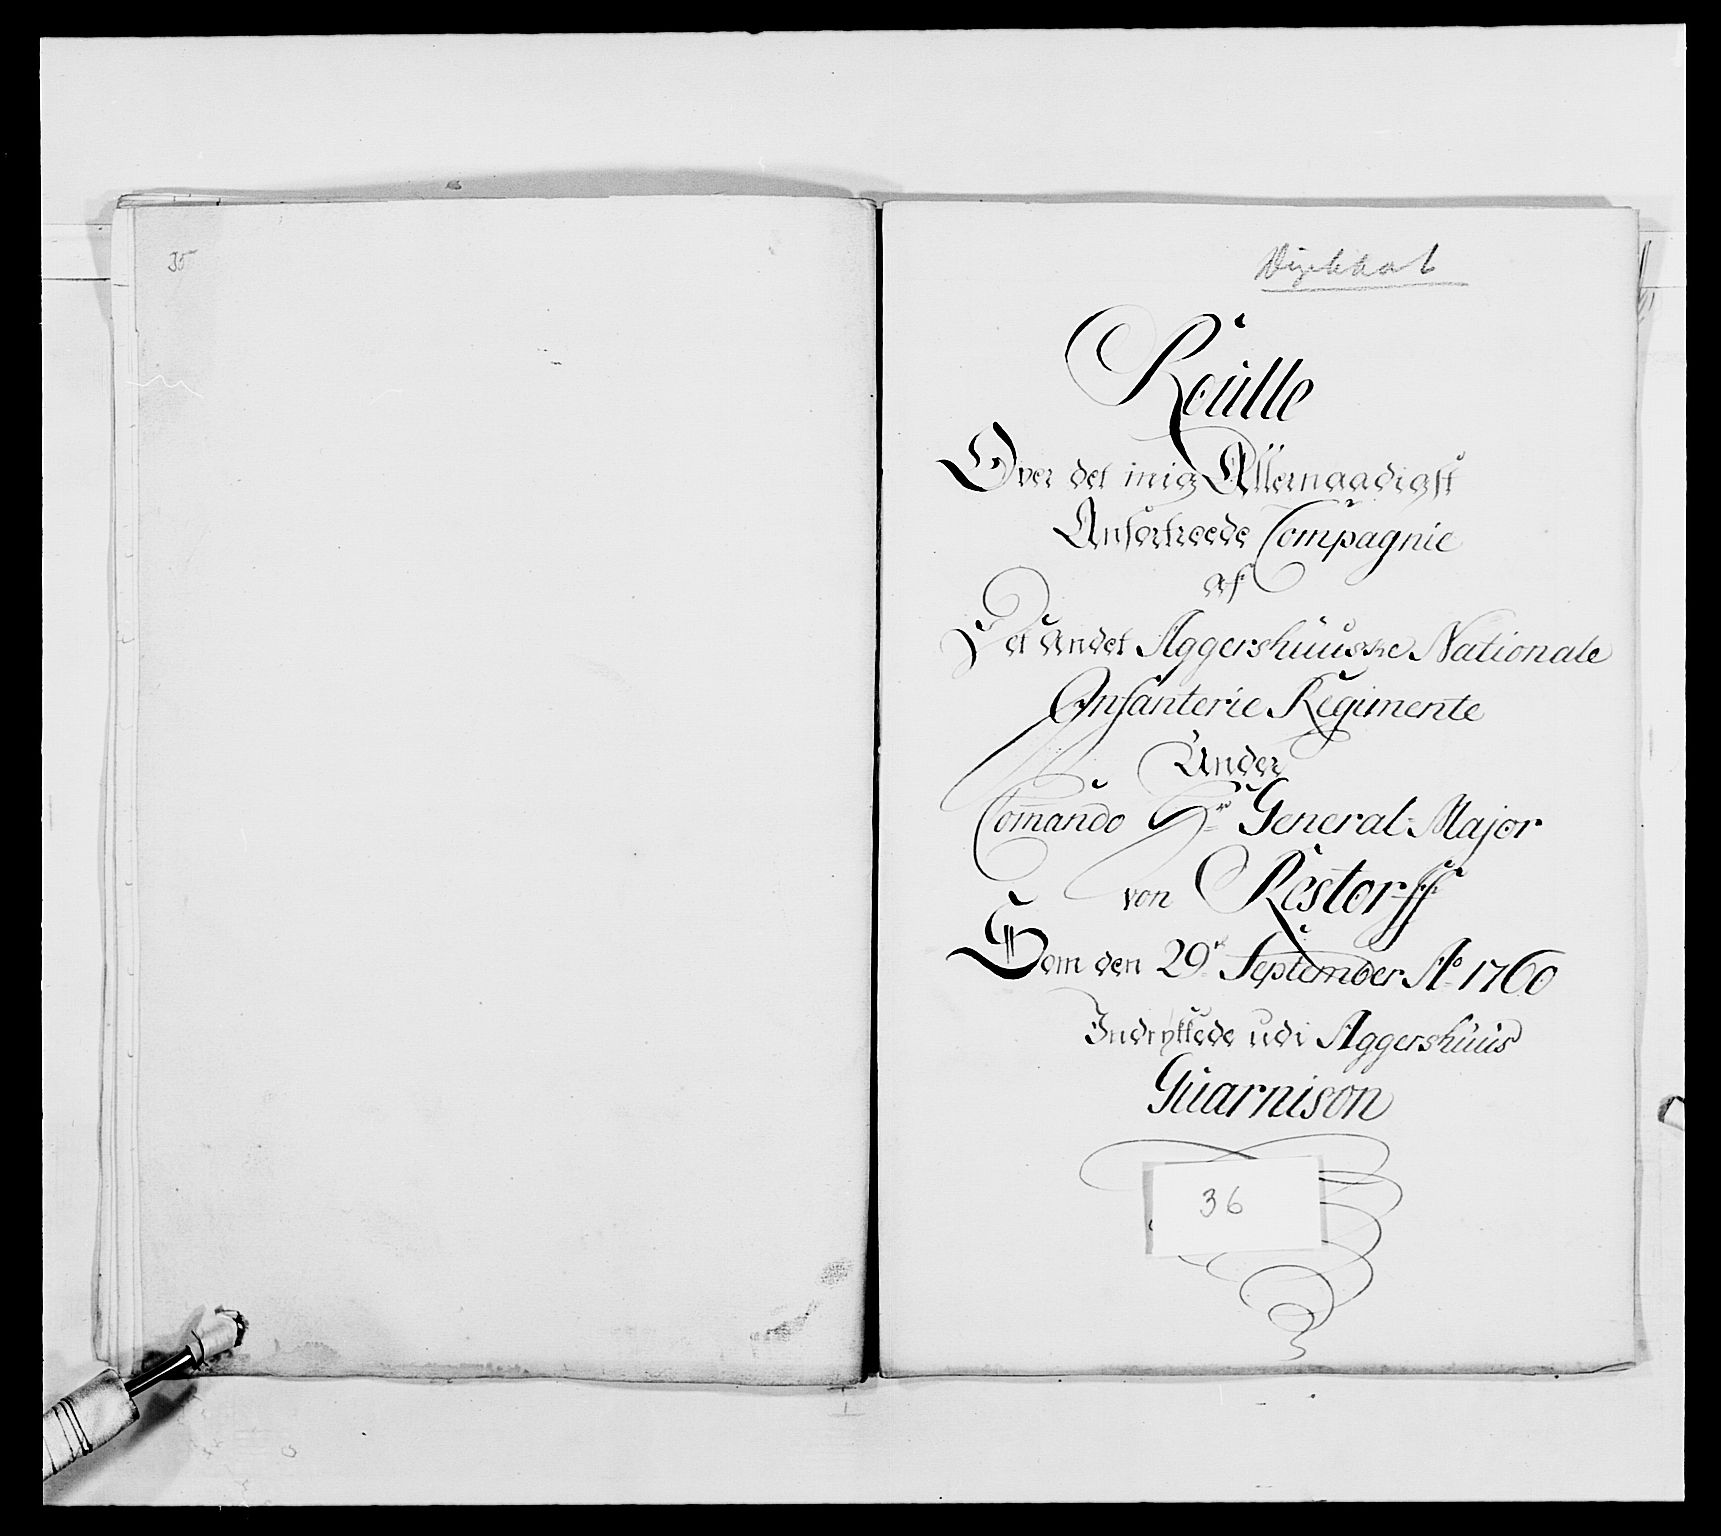 35
Roülle
Over det mig Allernaadigst
Anfortroede Compagnie
af
Det Andet Aggershüuske Nationale
Infanterie Regimente
Under
Com̄ando Hr General-Major
von Restorff
Som den 29de September Ao 1760
Indryckede udi Aggershüüs
Güarnison
36